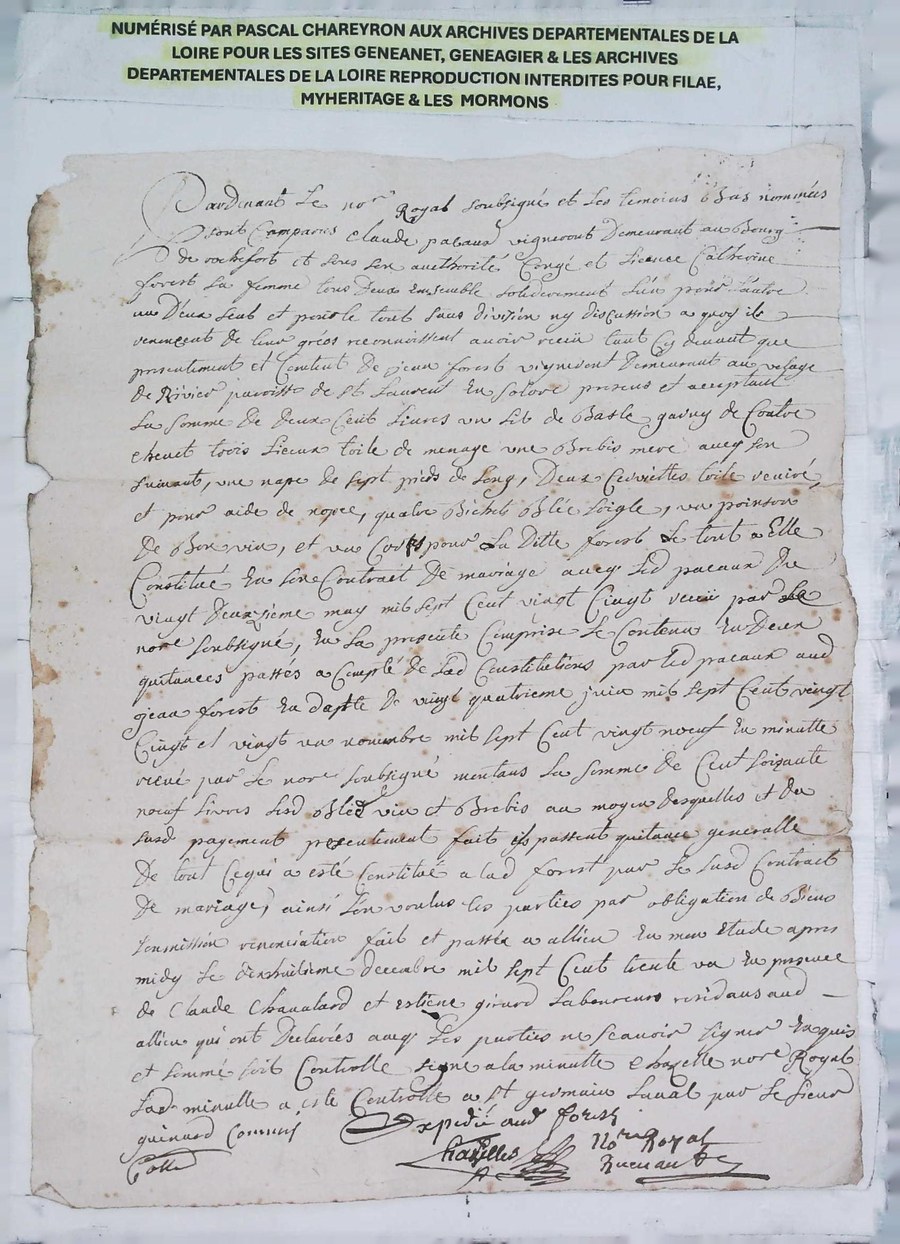 NUMÉRISÉ PAR PASCAL CHAREYRON AUX ARCHIVES DEPARTEMENTALES DE LA
LOIRE POUR LES SITES GENEANET, GENEAGIER & LES ARCHIVES
DEPARTEMENTALES DE LA LOIRE REPRODUCTION INTERDITES POUR FILAE,
MYHERITAGE & LES MORMONS
Pardevant Le nore Royal soubsigné et Les temoins Bas nommées
sont Comparus Claude pacaux vigneront Demeurant au Bourg
de rochefort et sous son authorité Congé et Licence Catherine
forest sa femme tous Deux Ensemble solidérement L'un pour L'autre
un D'eux seul et pour le tout sans division ny discussion a quoy ils
renoncent de leur grées reconnoissent avoir receu tant Cy devant que
presentement et Content De jean forest vigneront Demeurant au vilage
de Rivier parroisse de St Laurent En Solore present et acceptant
La somme De deux Cent Livres un Lit de Basle garny de Coutre
chevet trois Lieux toile de menage une Brebis mere avec son
suivant, une nape de sept pieds de Long, Deux Cerviettes toile
et pour aide de nopce, quatre Bichets Bled soigle, un poinson
De Bon vin, et un Corps pour La Ditte forest Le tout a Elle
Constitué En son Contrait De mariage avec Led pacaux Du
vingt Deuxsieme may mil sept Cent vingt Cinq receu par Le
nore soubsigné, En La presente Comprise Le Contenu En Deux
quitances passés a Compté de Lad Constitutions par Led pacaux aud
jean forest En dapte De vingt quatrieme juin mil sept Cent vingt
Cinq et vingt un novembre mil sept Cent vingt neuf En minutte
receue par Le nore soubsigné montans La somme De Cent soixante
neuf Livres Led Bled vin et Brebis au moyen desquelles et du
susd payement presentement fait ils passent quitance generalle
De tout Cequi a esté Constitué a Lad forest par Le susd Contrait
De mariage, ainsi L'on voulus les parties par obligation de Biens
soumission renonciation fait et passée a allieu En mon Etude apres
midy Le dixhuitieme decembre mil sept Cent trente un En presence
de Claude Chavalard et Estiene girard Laboureurs residans aud
allieu qui ont Declarés avec Les parties ne scavoir signer Enquis
et sommé soit Controlle signe a la minutte Chazelle nore Royal
Lad minutte a este Controllé a St germain Laval par Le sieur
guinard Commis
Expedié aud forest
Chazelles Nore Royal